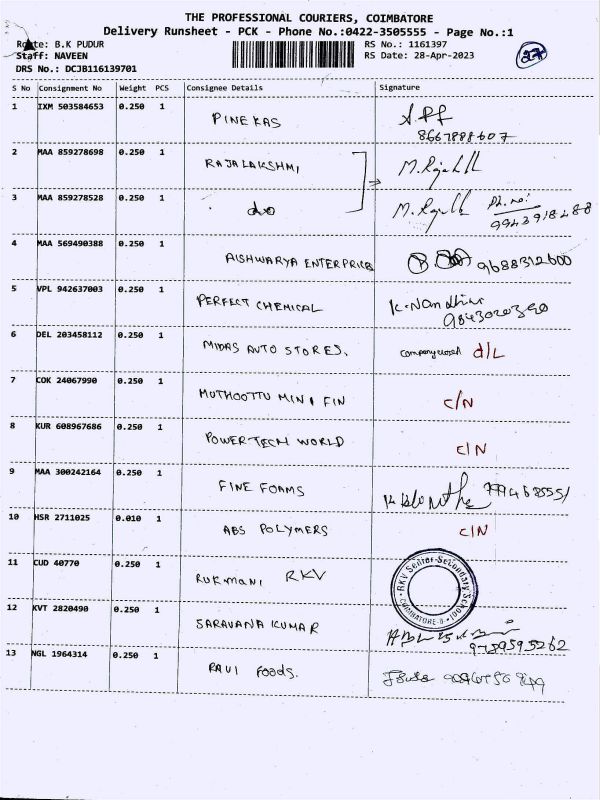 THE PROFESSIONAL COURIERS, COIMBATORE
Delivery Runsheet - PCK - Phone No.:0422-3505555 - Page No.:1
Route: B.K PUDUR RS No.: 1161397
Staff: NAVEEN RS Date: 28-Apr-2023
DRS No.: DCJB116139701
S No Consignment No Weight PCS Consignee Details Signature
1 IXM 503584653 0.250 1 PINEKAS
8667888607
2 MAA 859278698 0.250 1 RAJALAKSHMI
3 MAA 859278528 0.250 1 do Ph.no:
9943918488
4 MAA 569490388 0.250 1 AISHWARYA ENTERPRICE 9688312600
5 VPL 942637003 0.250 1 PERFECT CHEMICAL K. Nandhini
6 DEL 203458112 0.250 1 MIDAS AUTO STORES. company closed d/L
7 COK 24067990 0.250 1 MUTHOOTTU MINI FIN C/N
8 KUR 608967686 0.250 1 POWER TECH WORLD C/N
9 MAA 300242164 0.250 1 FINE FOAMS
10 HSR 2711025 0.010 1 ABS POLYMERS C/N
11 CUD 40770 0.250 1 RUKMANI RKV RKV Senior Secondary School COIMBATORE
12 KVT 2820490 0.250 1 SARAVANA KUMAR
9789595262
13 NGL 1964314 0.250 1 RAVI FOODS.